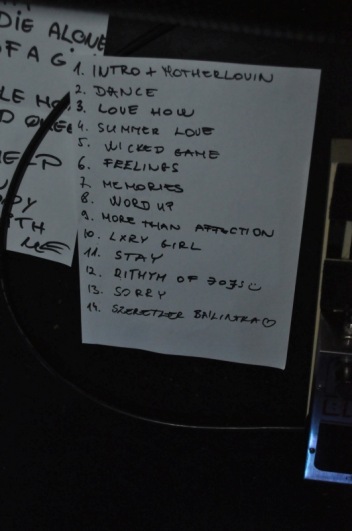 DIE ALONE
OF A G
1. INTRO + MOTHERLOVIN
2. DANCE
3. LOVE HOW
4. SUMMER LOVE
5. WICKED GAME
6. FEELINGS
7. MEMORIES
8. WORD UP
9. MORE THAN AFFECTION
10. LXRY GIRL
11. STAY
12. RITHYM OF
13. SORRY
14. SZERETLEK
ME